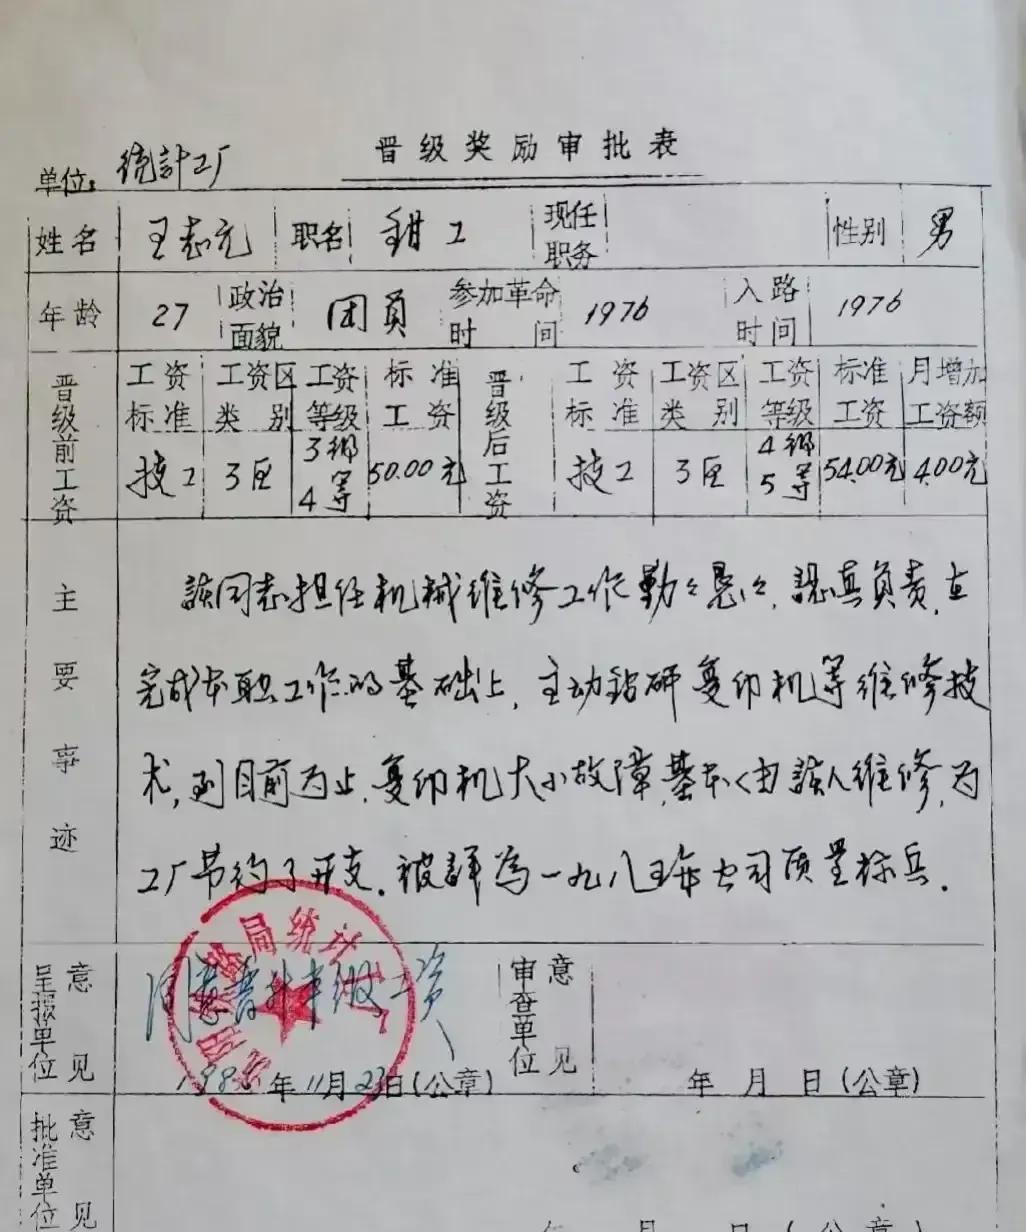 晋级奖励审批表
单位：统計工厂
姓名 王志元 职名 钳工 现任职务 性别 男
年龄 27 政治面貌 团員 参加革命时间 1976 入路时间 1976
晋级前工资 工资标准 工资区类别 工资等级 标准工资 晋级后工资 工资标准 工资区类别 工资等级 标准工资 月增加工资额
技工 3区 3级4等 50.00元 技工 3区 4级5等 54.00元 4.00元
主要事迹
該同志担任机械维修工作勤々恳々，認真负责，在
完成本职工作的基础上，主动钻研复印机等维修技
术，到目前为止，复印机大小故障，基本〈由該人维修，为
工厂节约了开支。被評為一九八五年公司质量标兵。
呈报单位意见 同意晋升半级工资
11月23日(公章)
审查单位意见
年 月 日(公章)
局统计工厂
批准单位意见
年 月 日(公章)